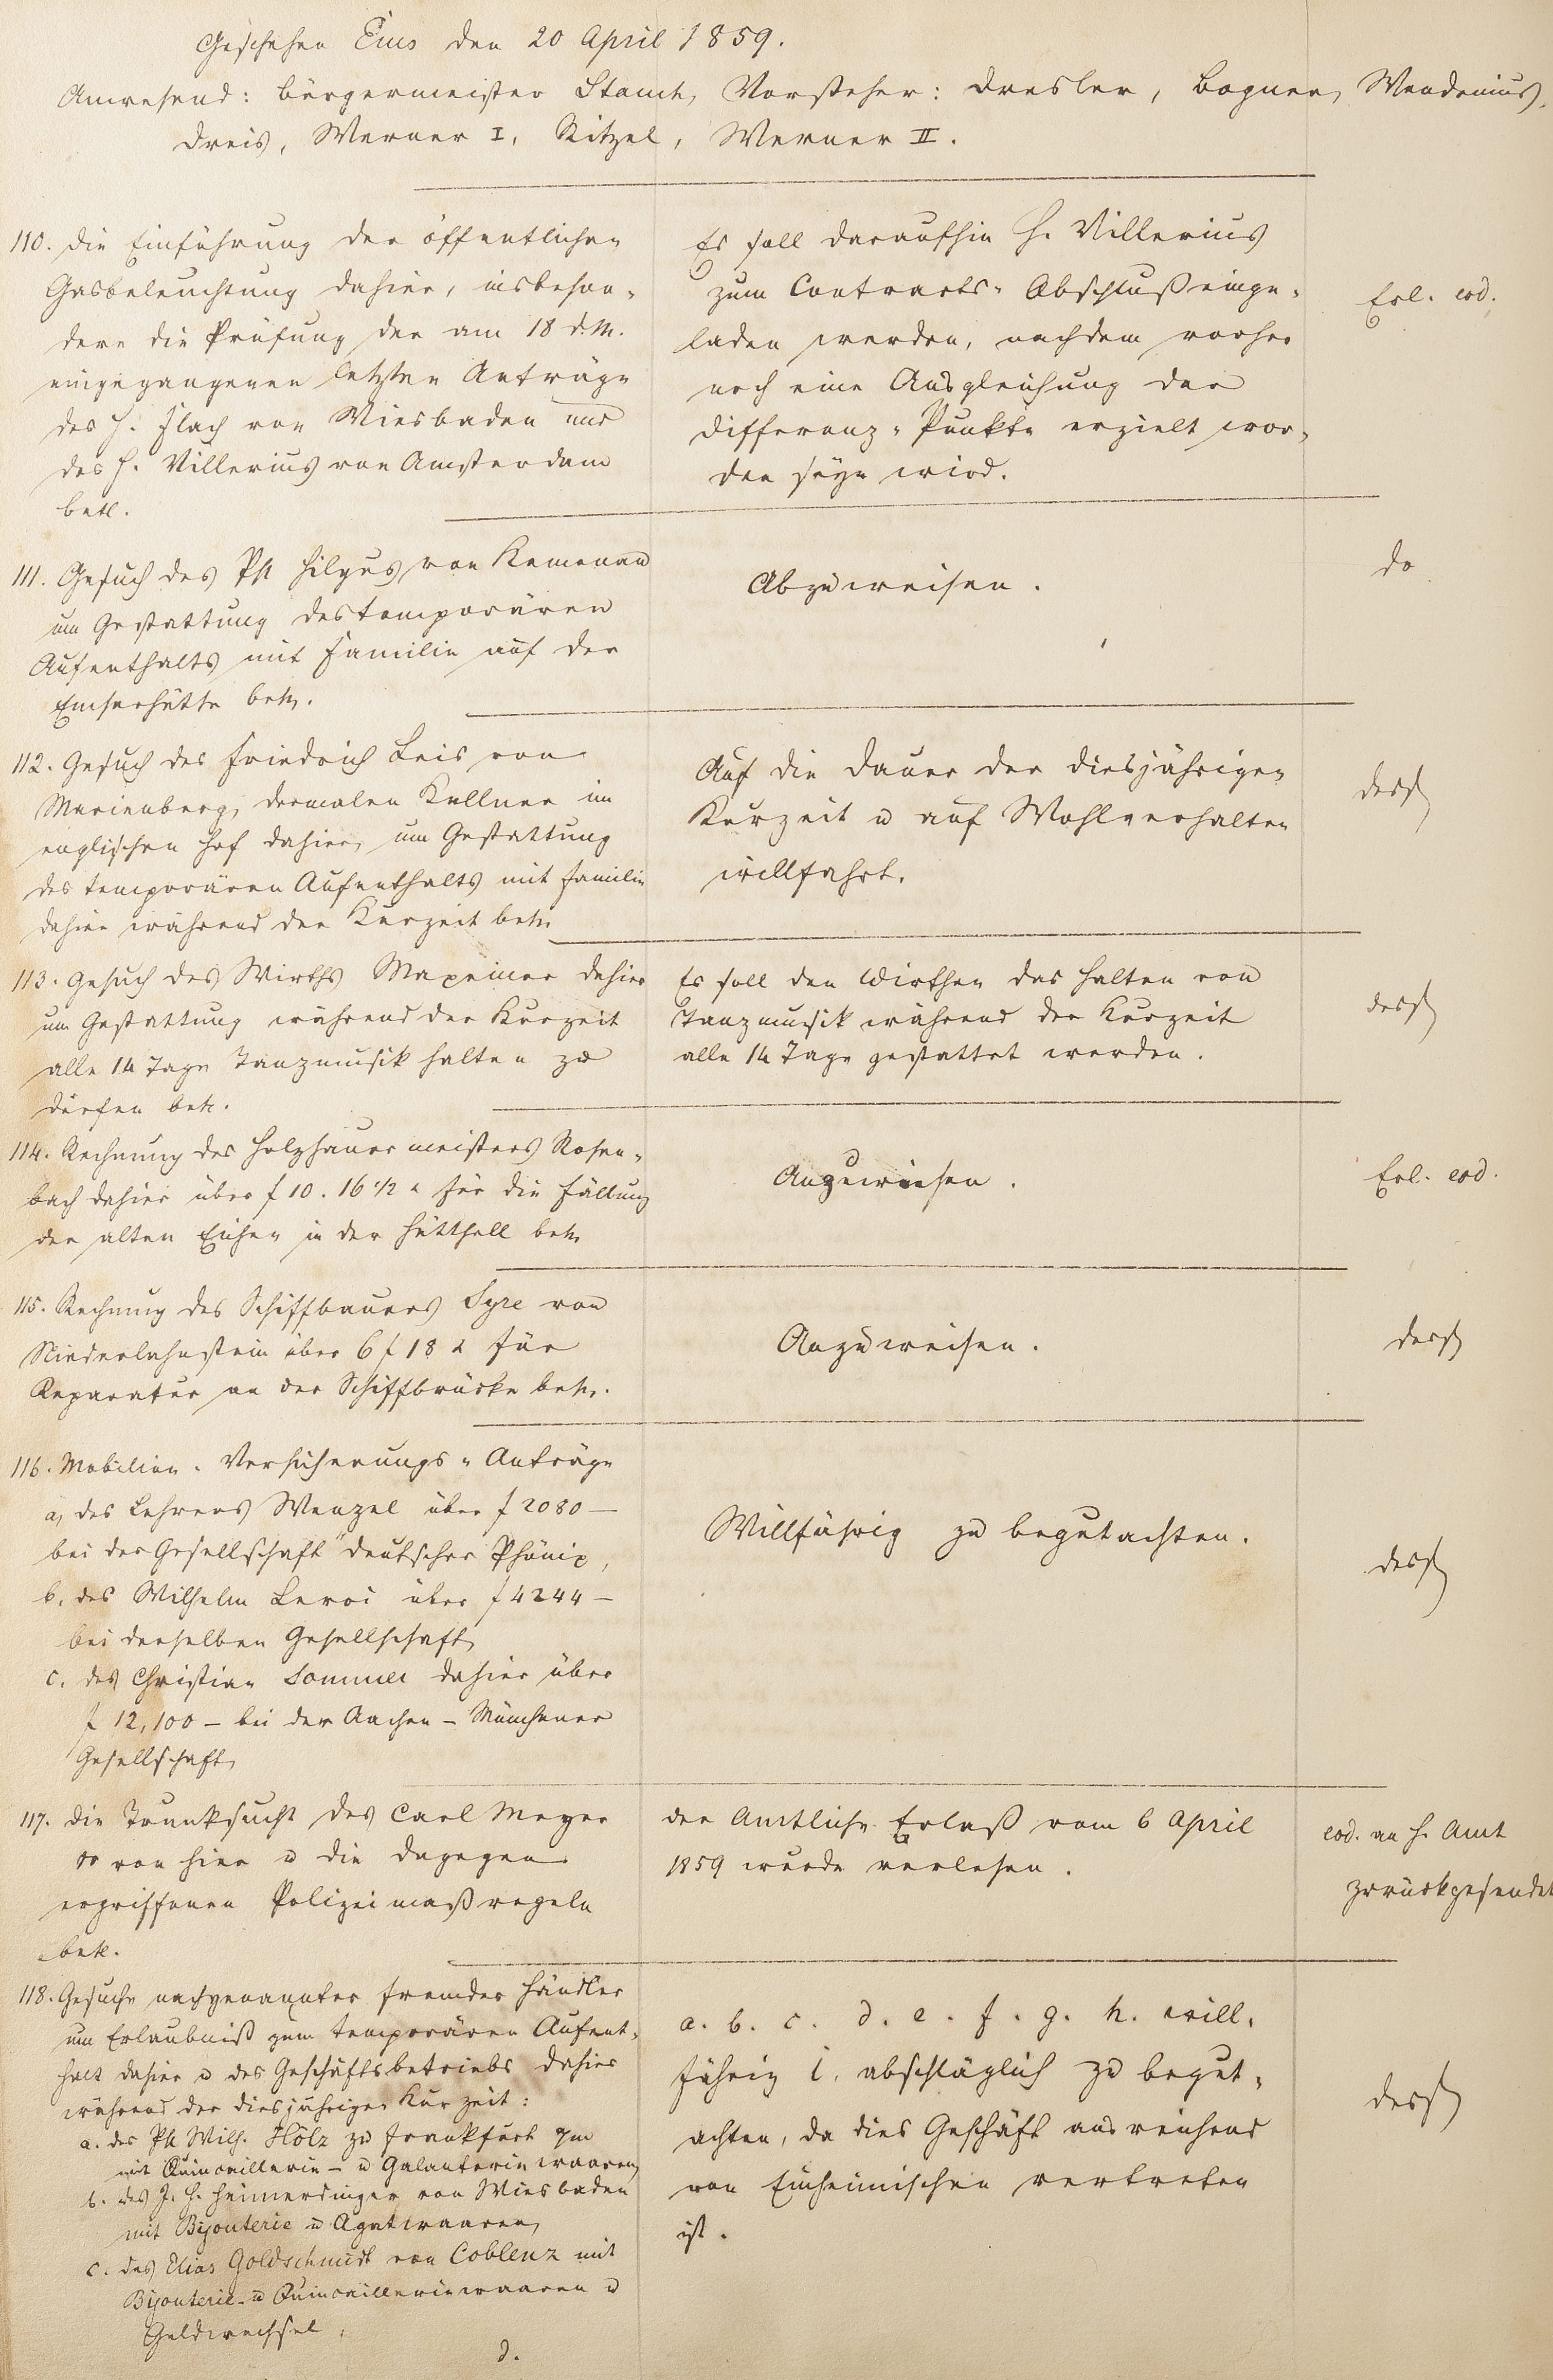 Geschehen Ems den 20 April 1859.
Anwesend: Bürgermeister Stamh, Vorsteher: Dresler, Bogner,
Dreis, Werner I, Ritzel, Werner II.
110. Die Einführung der öffentlichen
Gasbeleuchtung dahier, insbeson-
dere die Prüfung der am 18 d. M.
eingegangenen letzten Anträge
des H. Flach von Wiesbaden und
des H. Villerius von Amsterdam
betr.
Es soll daraufhin H. Villerius
zum Contracts-Abschluß einge-
laden werden, nachdem vorher
noch eine Ausgleichung der
Differenz-Punkte erzielt wor-
den seyn wird.
Erl. eod.
111. Gesuch des Ph Hilges von Kemenau
um Gestattung des temporären
Aufenthalts mit Familie auf der
Emserhütte betr.
Abzuweisen.
do
112. Gesuch des Friedrich Leis von
Marienberg, dermalen Kellner im
englischen Hof dahier, um Gestattung
des temporären Aufenthalts mit Familie
dahier während der Kurzeit betr.
Auf die Dauer der diesjährigen
Kurzeit u auf Wohlverhalten
willfahrt.
dess
113. Gesuch des Wirths Maxeiner dahier
um Gestattung während der Kurzeit
alle 14 Tage Tanzmusik halten zu
dürfen betr.
Es soll den Wirthen das Halten von
Tanzmusik während der Kurzeit
alle 14 Tage gestattet werden.
dess
114. Rechnung des Holzhauermeisters Rosen-
bach dahier über f 10. 16 1/2 x für die Fällung
der alten Eichen in der Hütthell betr.
Anzuweisen.
Erl. eod.
115. Rechnung des Schiffbauers Syre von
Niederlahnstein über 6 f 18 x für
Reparatur an der Schiffbrücke betr.
Anzuweisen.
dess
116. Mobiliar-Versicherungs-Anträge
a, des Lehrers Wenzel über f 2080 —
bei der Gesellschaft "Deutscher Phönix,
b, des Wilhelm Leroi über f 4244 —
bei derselben Gesellschaft,
c, des Christian Sommer dahier über
f 12,100 — bei der Aachen-Münchener
Gesellschaft,
Willfährig zu begutachten.
dess
117. Die Trunksucht des Carl Meyer
von hier u die dagegen
ergriffenen Polizeimaßregeln
betr.
Der Amtliche Erlaß vom 6 April
1859 wurde verlesen.
eod. an H. Amt
zurückgesendet
118. Gesuche nachgenannter fremder Händler
um Erlaubniß zum temporären Aufent-
halt dahier u des Geschäftsbetriebs dahier
während der diesjährigen Kurzeit:
a. des Ph Wilh. Hölz zu Frankfurt
mit Quincaillerie- u Galanteriewaaren,
b. des J. H. Heimerdinger von Wiesbaden
mit Bijouterie u Agatwaaren,
c. des Elias Goldschmidt von Coblenz mit
Bijouterie- u Quincailleriewaaren u
Geldwechsel,
d.
a. b. c. d. e. f. g. h. will-
fährig i. abschläglich zu begut-
achten, da dies Geschäft ausreichend
von Einheimischen vertreten
ist.
dess